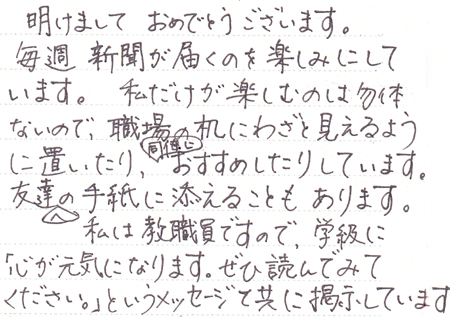 明けまして おめでとうございます。
毎週 新聞が届くのを楽しみにして
います。 私だけが楽しむのは勿体
ないので、職場の机にわざと見えるよう
に置いたり、 おすすめしたりしています。
友達の手紙に添えることもあります。
私は教職員ですので、学級に
「心が元気になります。ぜひ読んでみて
ください。」というメッセージで共に掲示しています